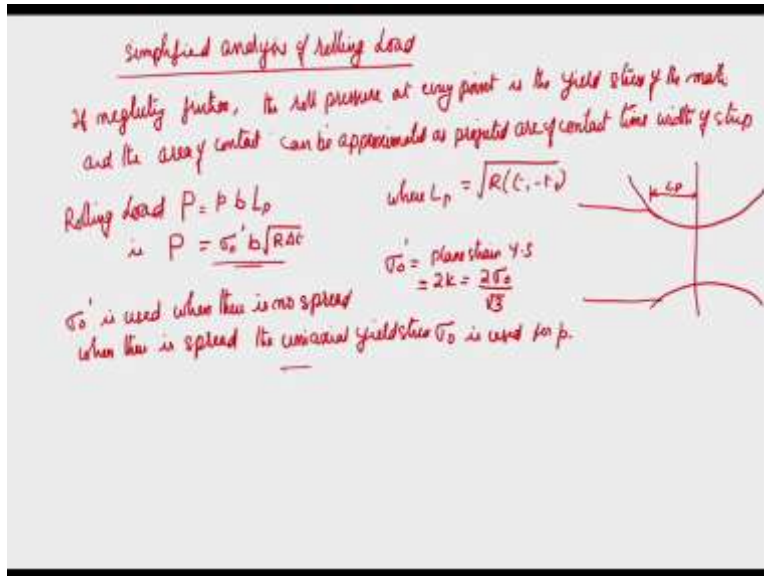 Simplified analysis of rolling Load
If neglecting friction, the roll pressure at every point is the yield stress of the matl.
and the area of contact can be approximated as projected area of contact time width of strip
Rolling Load P = p b Lp
where Lp = √R(t₁-t₀)
Lp
ie P = σ₀' b√RΔt
σ₀' = plane strain Y.S
= 2k = 2σ₀/√3
σ₀' is used when there is no spread
when there is spread the uniaxial yield stress σ₀ is used for p.